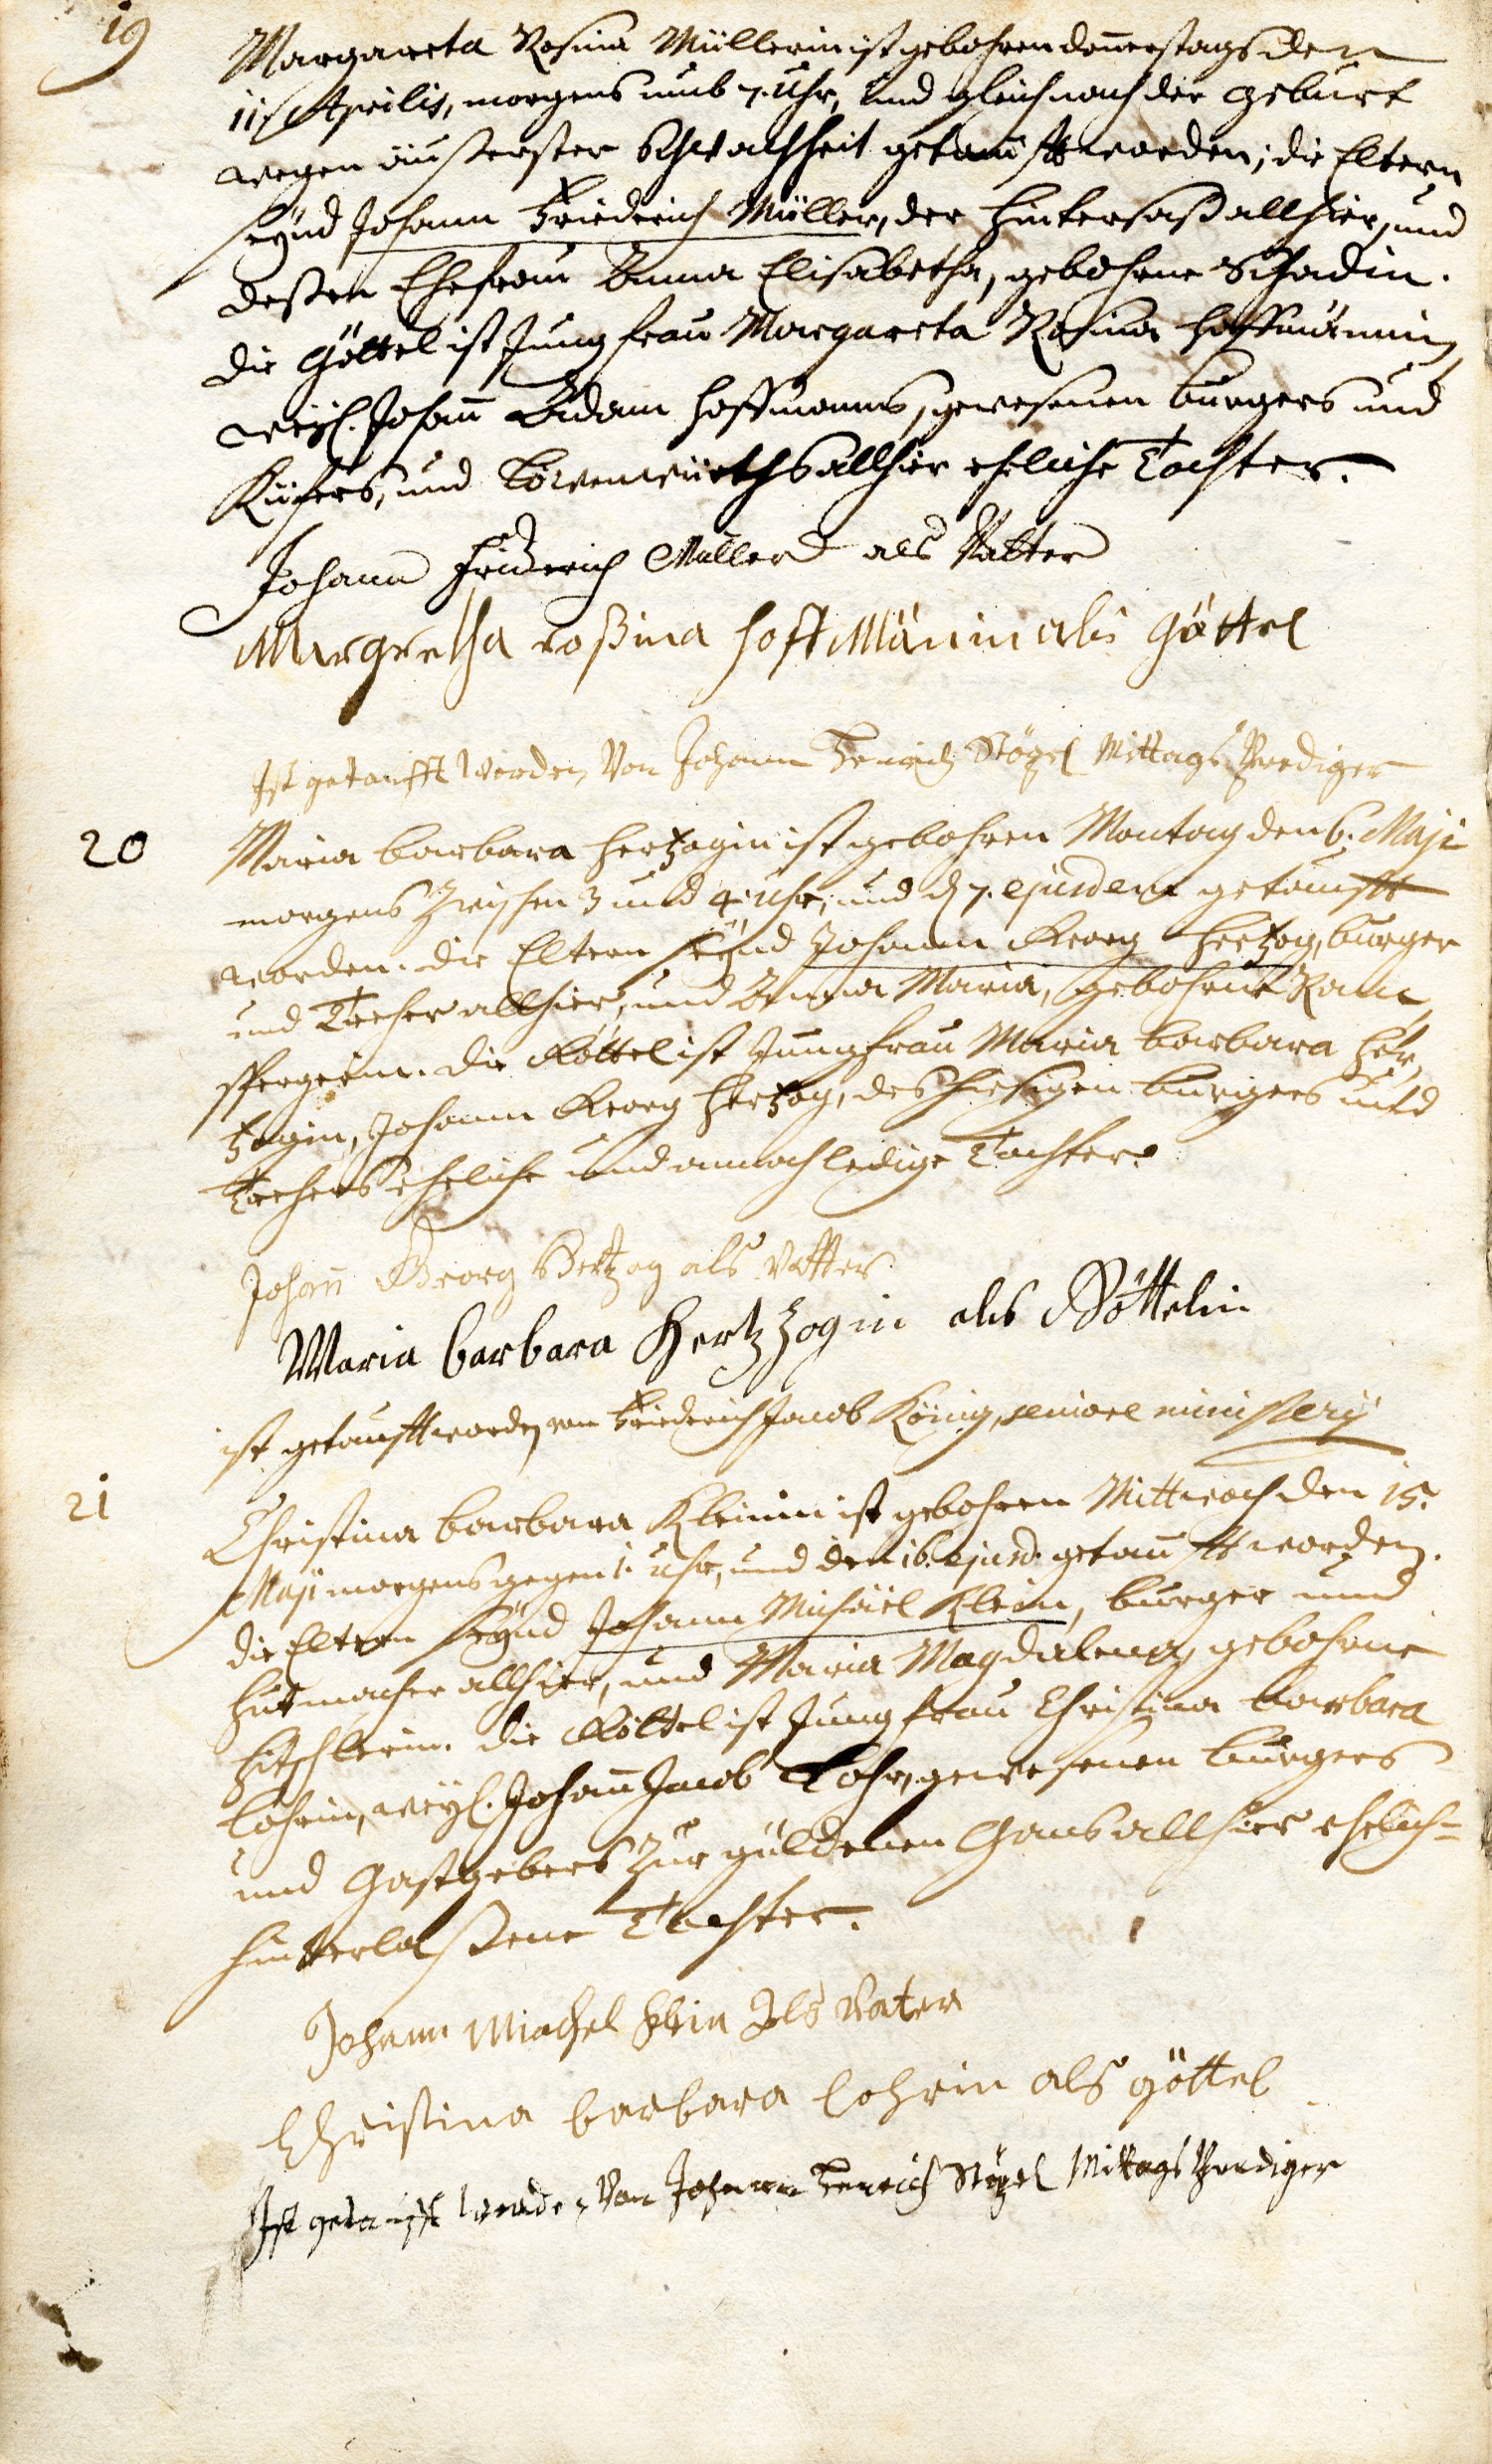 19
Margareta Rosina Müllerin ist gebohren donnerstags den
11 Aprilis, morgens umb 7. Uhr, und gleich nach der geburt
wegen äußerster Schwachheit getaufft worden; die Eltern
seynd Johann Friederich Müller, der Hintersaß allhier, und
deßen Ehefrau Anna Elisabetha, gebohrne Schadin.
die Göttel ist Jungfrau Margareta Rosina Hoffmännin,
weyl. Johañ Adam Hoffmanns, gewesenen burgers und
Küfers, und Löwenwürths allhier eheliche Tochter.
Johann Friderich Müller als Vatter
Margretha roßina hoffMänin als Göttel
Ist getaufft worden, Von Johann Henrich Stögel Mittags Prediger
20
Maria barbara Hertzogin ist gebohren Montag den 6. Maji
morgens zwischen 3 und 4. uhr, und d. 7. ejusdem getaufft
worden. die Eltern seynd Johann Georg Hertzog, burger
und Becher allhier, und Anna Maria, gebohrne Ram
spergerin. die Göttel ist Jungfrau Maria barbara Her,
tzogin, Johann Georg Hertzog, des hiesigen burgers und
Bechers eheliche und annoch ledige Tochter.
Johañ Georg Hertzog als vatter
Maria barbara Hertzzogin als Göttelin
ist getaufft worden von Friederich Jacob König, seniore ministerij
21
Christina barbara Kleinin ist gebohren Mittwoch den 15.
Maji morgens gegen 1. uhr, und den 16. ejusd. getaufft worden.
die Eltern seynd Johann Michäel Klein, burger und
Hutmacher allhier, und Maria Magdalena, gebohrne
Hitschlerin. die Göttel ist Jungfrau Christina barbara
Lohrin, weyl. Johañ Jacob Lohr, gewesenen burgers
und Gastgebers zur güldenen Gans allhier ehelich=
hinterlaßene Tochter.
Johann Miachel Klein Als Vater
Christina barbara Lohrin als göttel
Ist getaufft worden, Von Johann Henrich Stögel Mittags Prediger